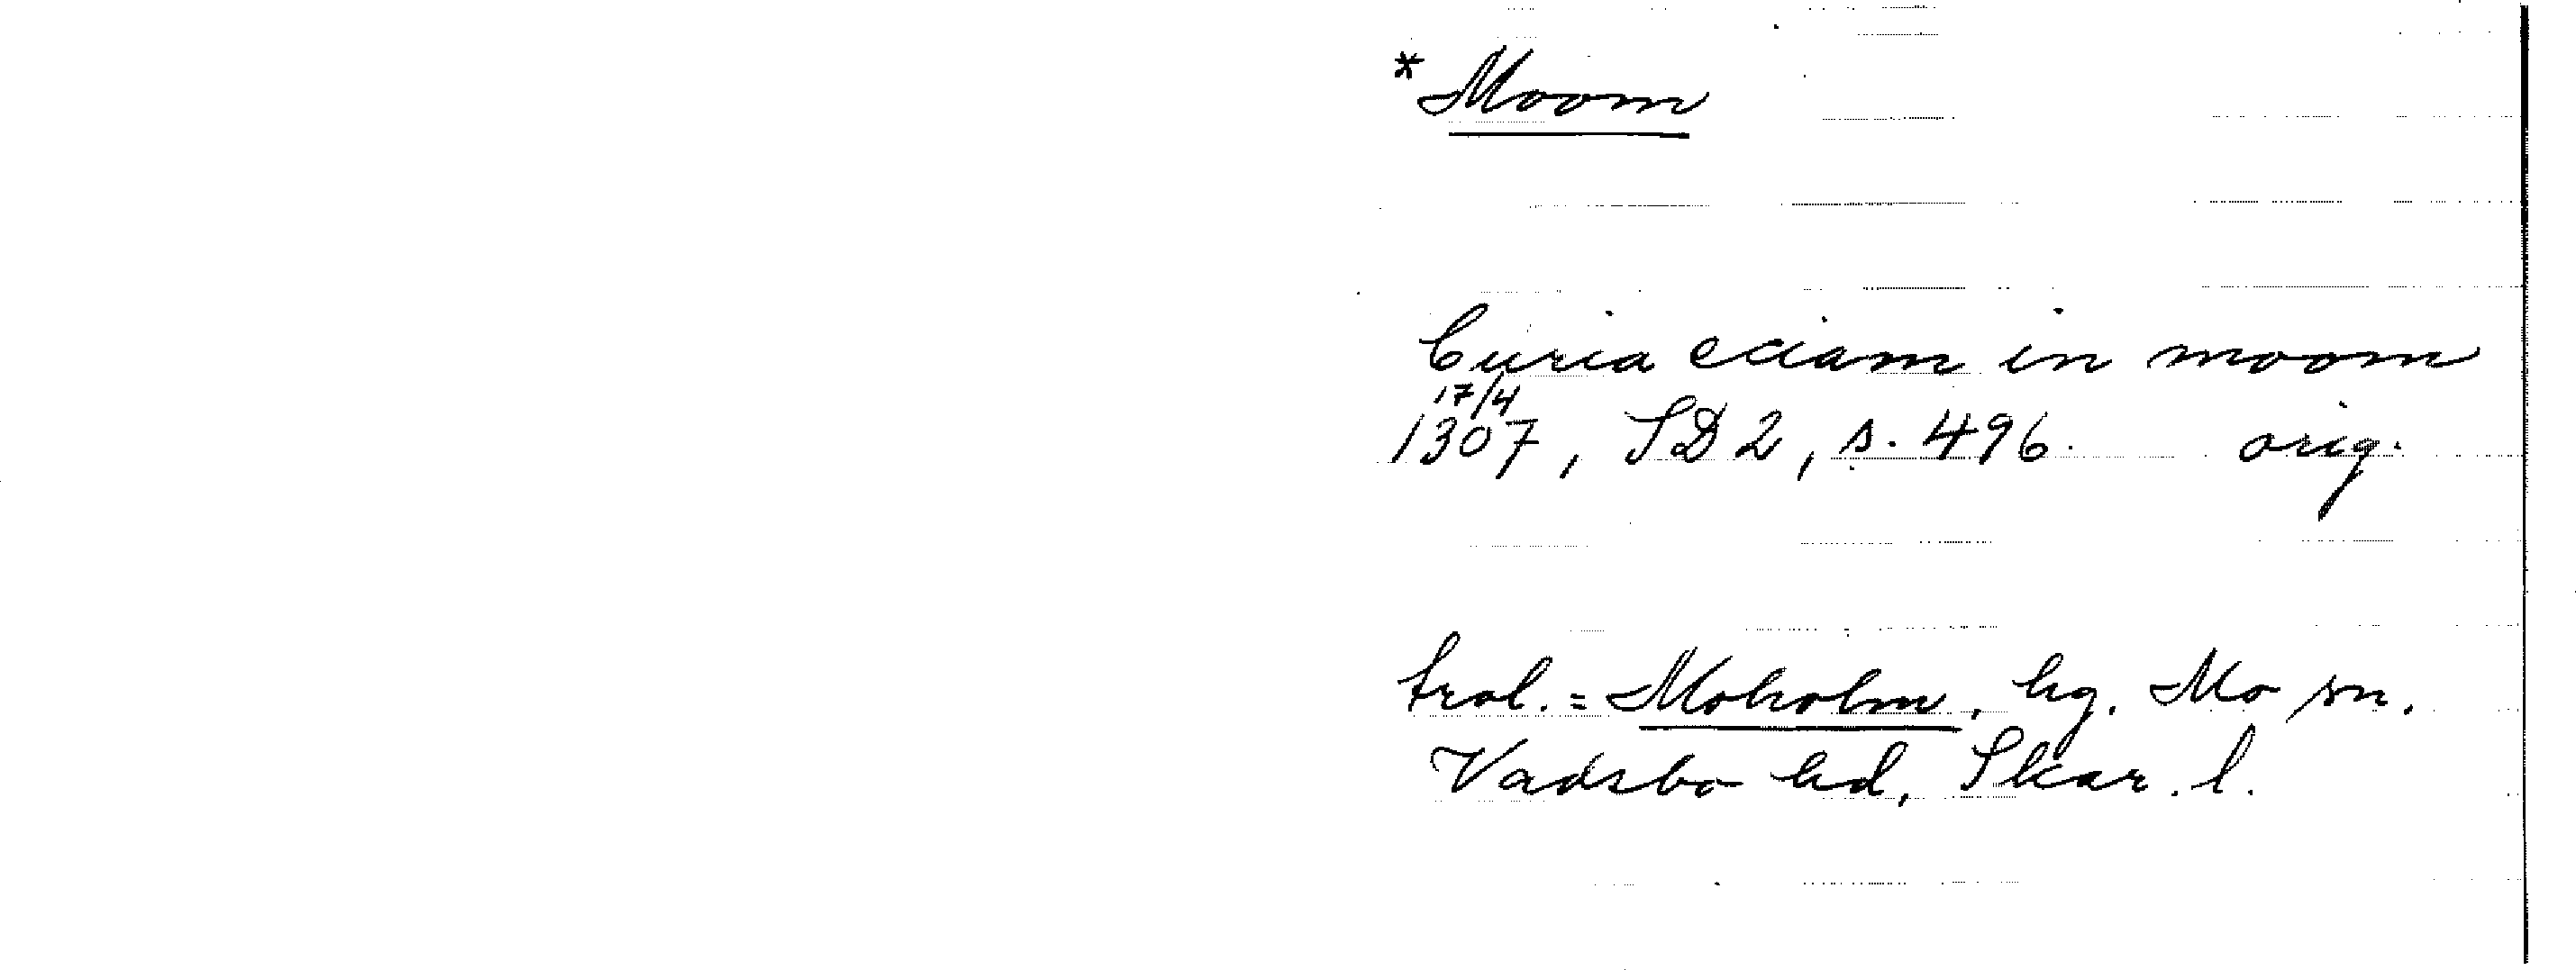 * Moom
Curia eciam in moom
17/4
1307, SD 2, s. 496. orig.
trol. = Moholm, hg. Mo sn.
Vadsbo hd, Skar. l.